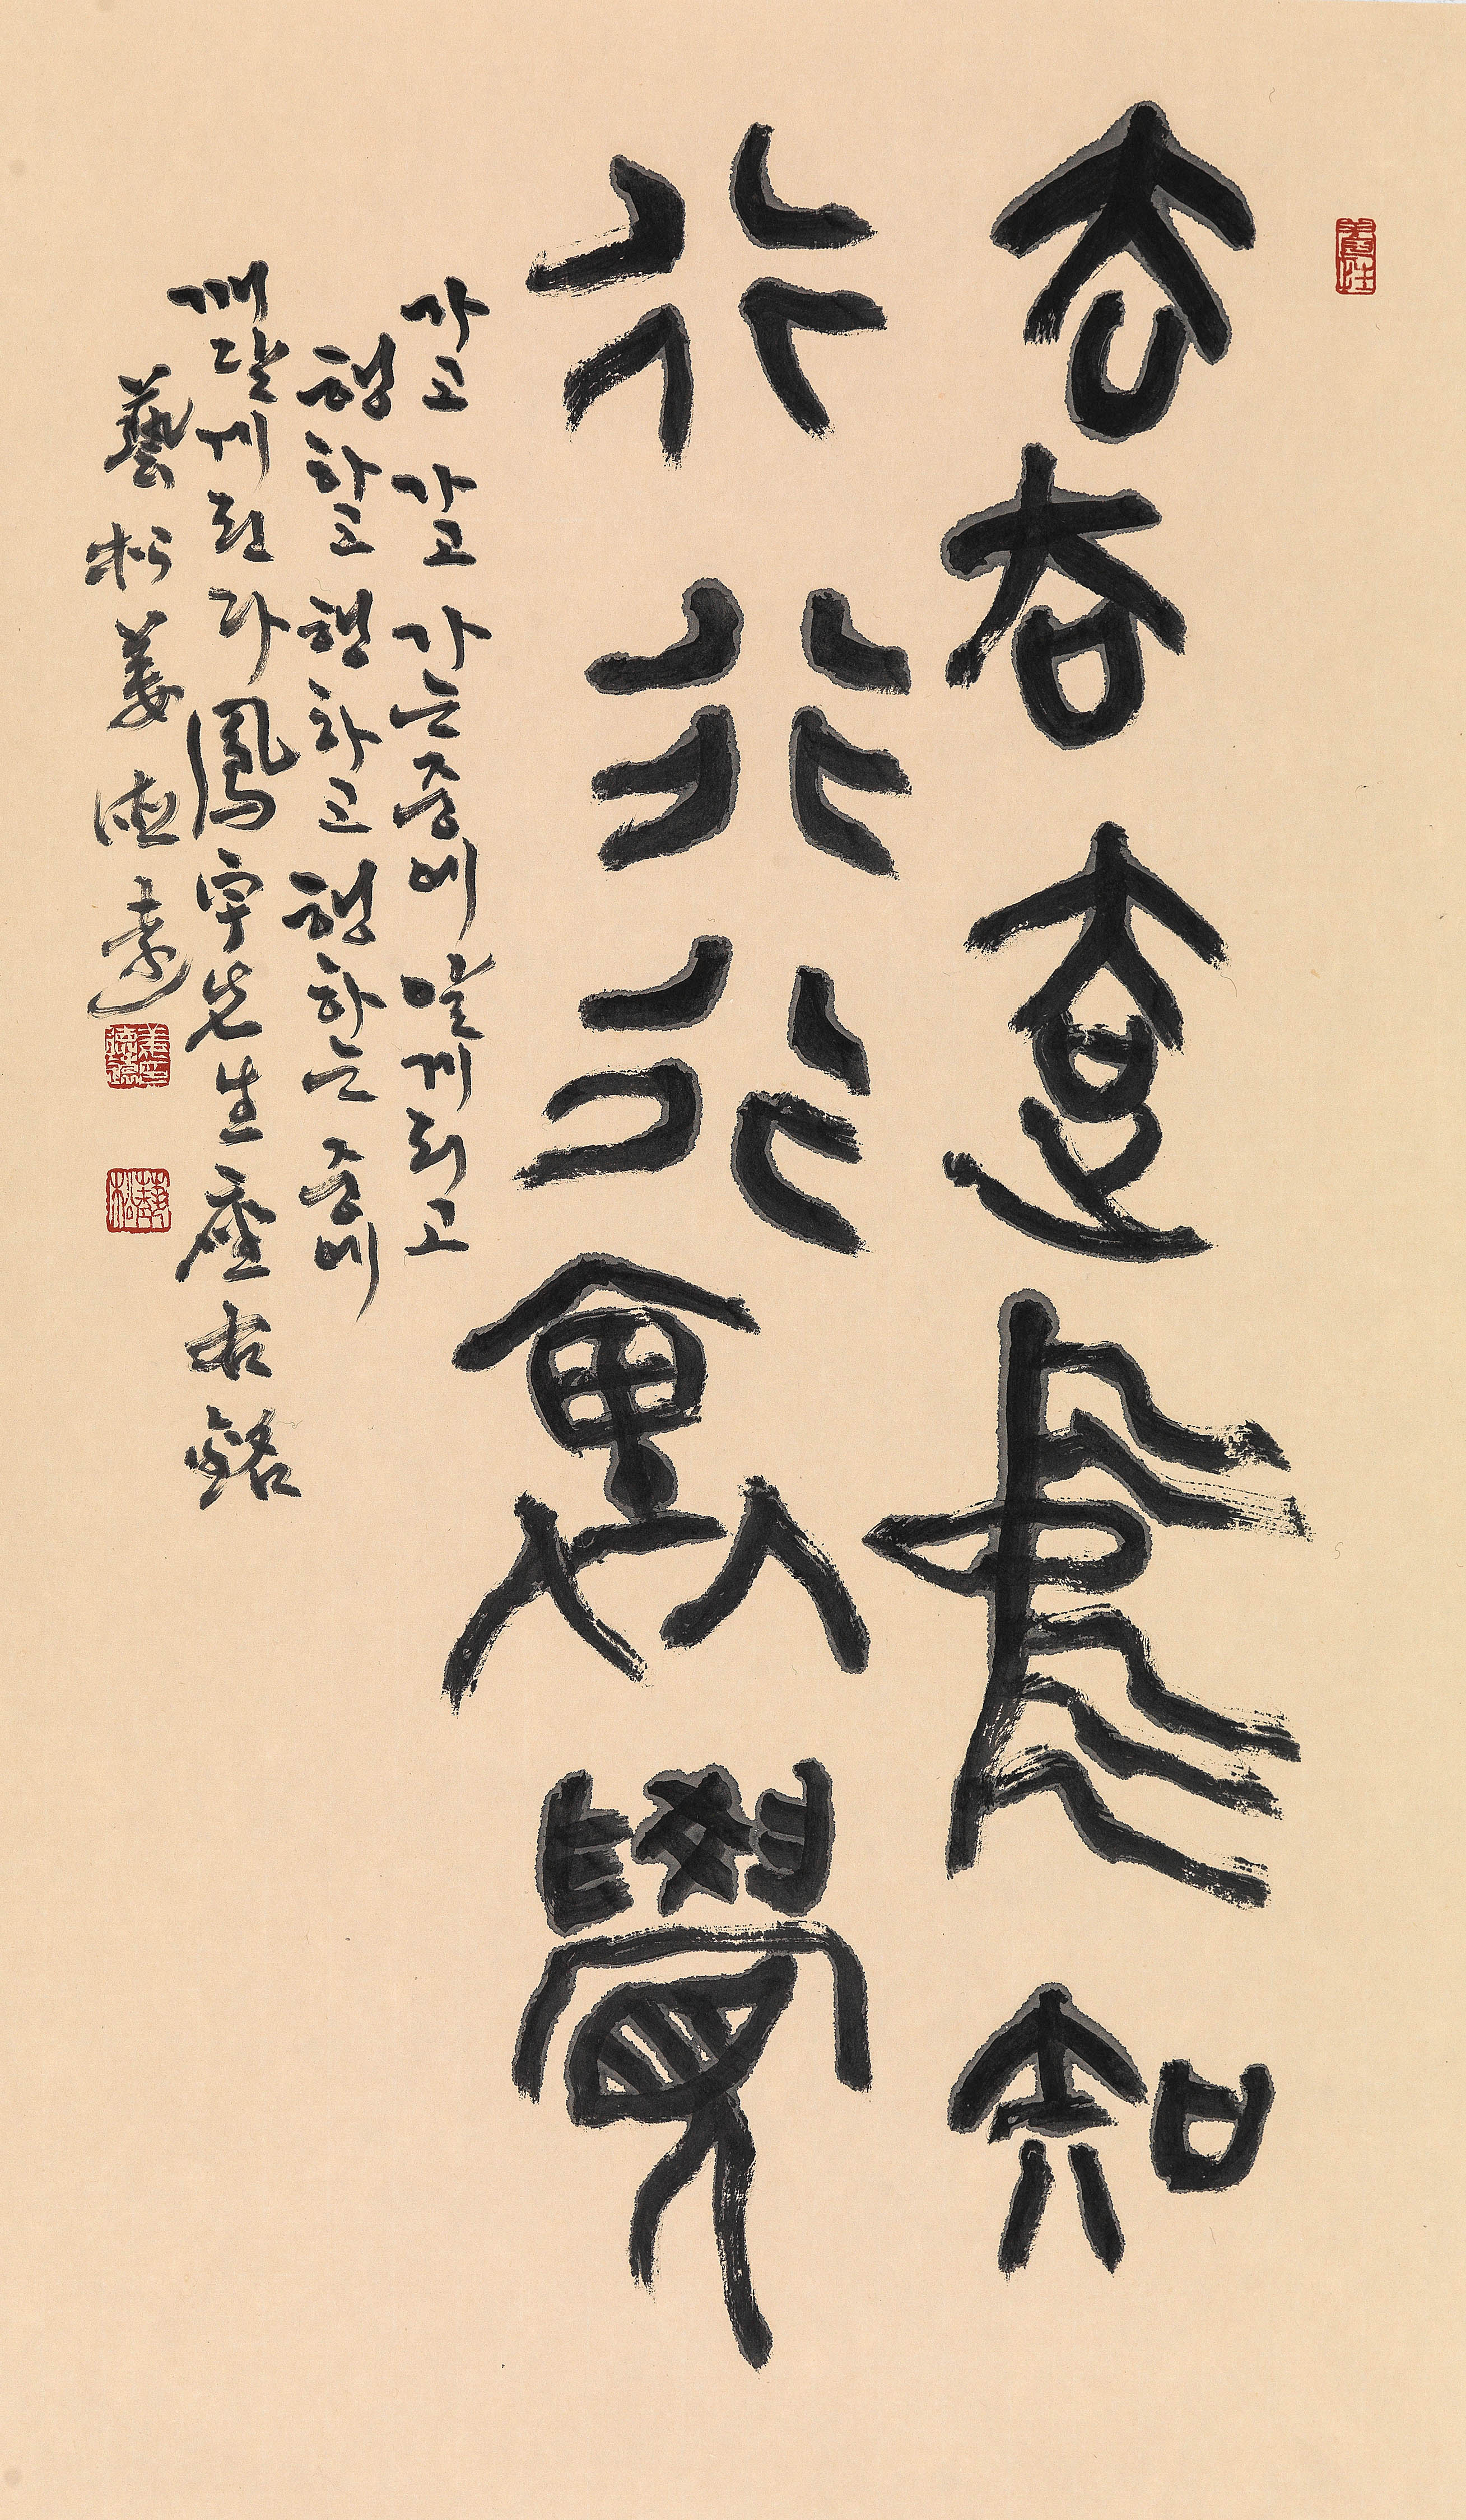 養性
去去去中知
行行行裏覺
가고 가고 가는중에 알게되고
행하고 행하고 행하는 중에
깨닫게된다 鳳宇先生座右銘
藝松 姜德遠
藝松